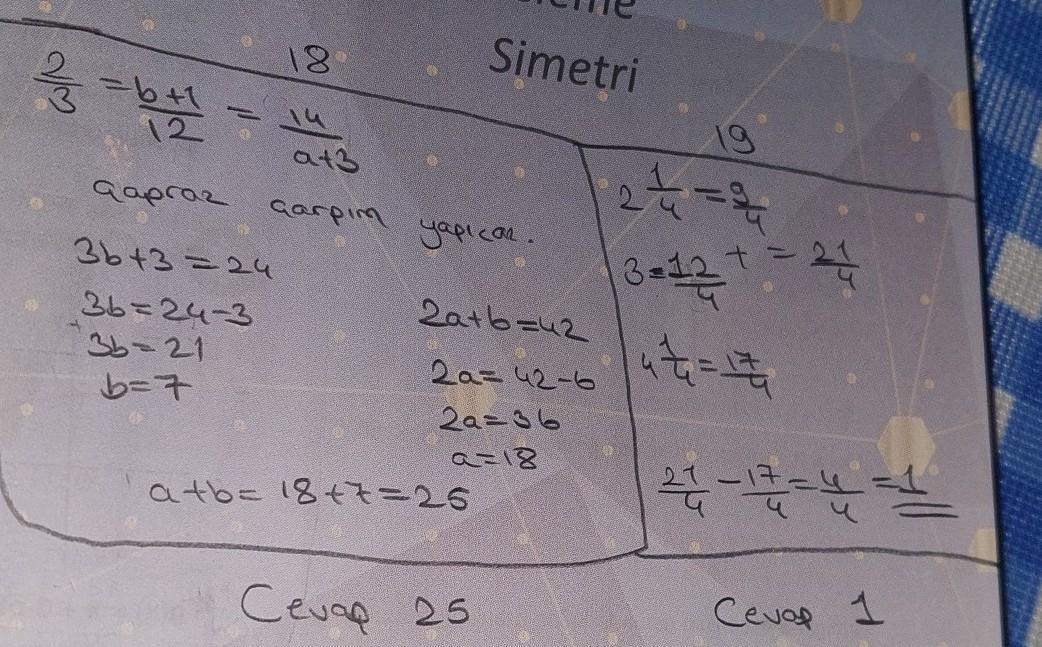 Simetri
18
2/3 = b+1/12 = 14/a+3
Çapraz çarpım yapıcaz.
3b+3=24
3b=24-3
3b=21
b=7
2a+6=42
2a=42-6
2a=36
a=18
a+b=18+7=25
Cevap 25
19
2 1/4 = 9/4
3 = 12/4 + = 21/4
4 1/4 = 17/4
21/4 - 17/4 = 4/4 = 1
Cevap 1